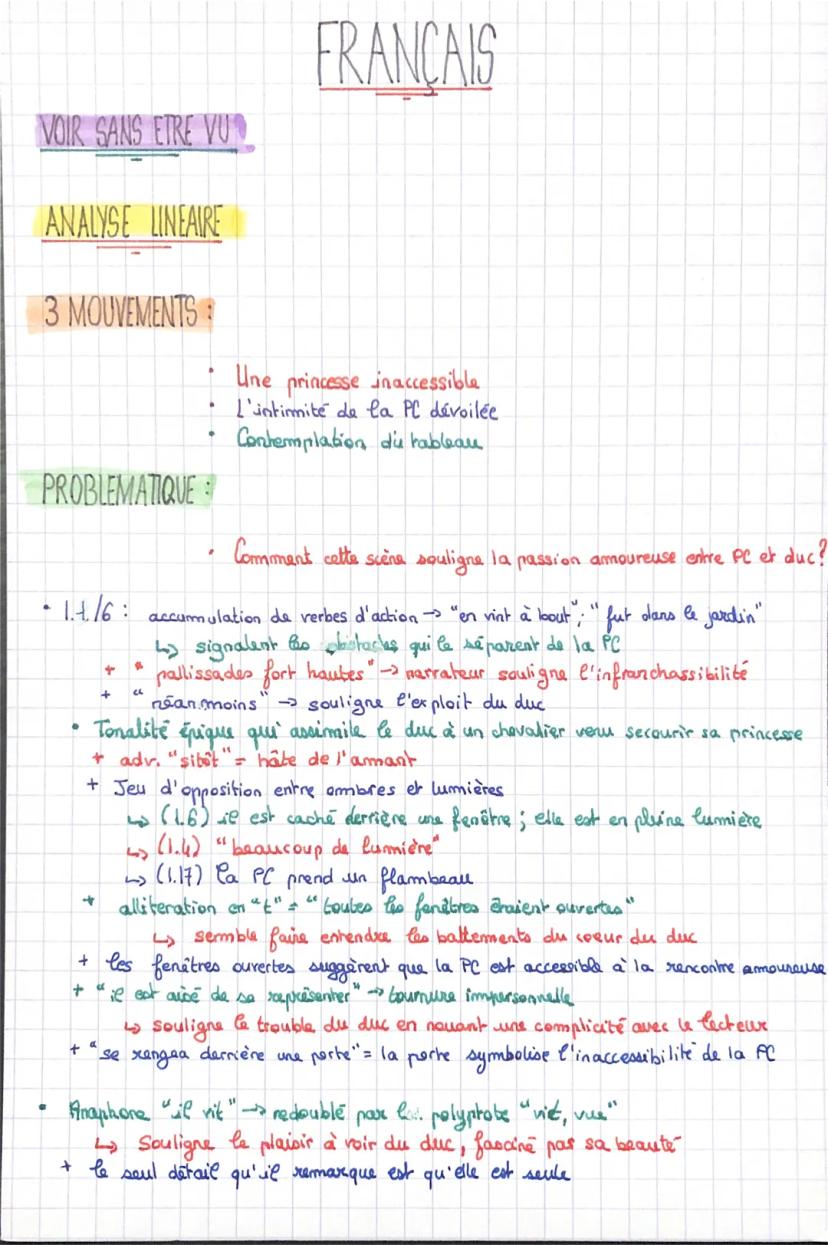 FRANÇAIS
VOIR SANS ETRE VU
ANALYSE LINEAIRE
3 MOUVEMENTS :
• Une princesse inaccessible
• L'intimité de la PC dévoilée
• Contemplation du tableau
PROBLEMATIQUE :
• Comment cette scène souligne la passion amoureuse entre PC et duc?
• l.1/6 : accumulation de verbes d'action → "en vint à bout"; "fut dans le jardin"
↳ signalent les obstacles qui le séparent de la PC
+ "pallissades fort hautes" → narrateur souligne l'infranchassibilité
+ "néanmoins" → souligne l'exploit du duc
• Tonalité épique qui assimile le duc à un chevalier venu secourir sa princesse
+ adv. "sitôt" = hâte de l'amant
+ Jeu d'opposition entre ombres et lumières
↳ (l.6) il est caché derrière une fenêtre ; elle est en pleine lumière
↳ (l.4) "beaucoup de lumière"
↳ (l.17) la PC prend un flambeau
+ alliteration en "t" = "toutes les fenêtres étaient ouvertes"
↳ semble faire entendre les battements du coeur du duc
+ les fenêtres ouvertes suggèrent que la PC est accessible à la rencontre amoureuse
+ "il est aisé de se représenter" → tournure impersonnelle
↳ souligne le trouble du duc en nouant une complicité avec le lecteur
+ "se rangea derrière une porte" = la porte symbolise l'inaccessibilité de la PC
• Anaphore "il vit" → redoublé par le polyptote "vit, vue"
↳ Souligne le plaisir à voir du duc, fasciné pas sa beauté
+ le seul détail qu'il remarque est qu'elle est seule